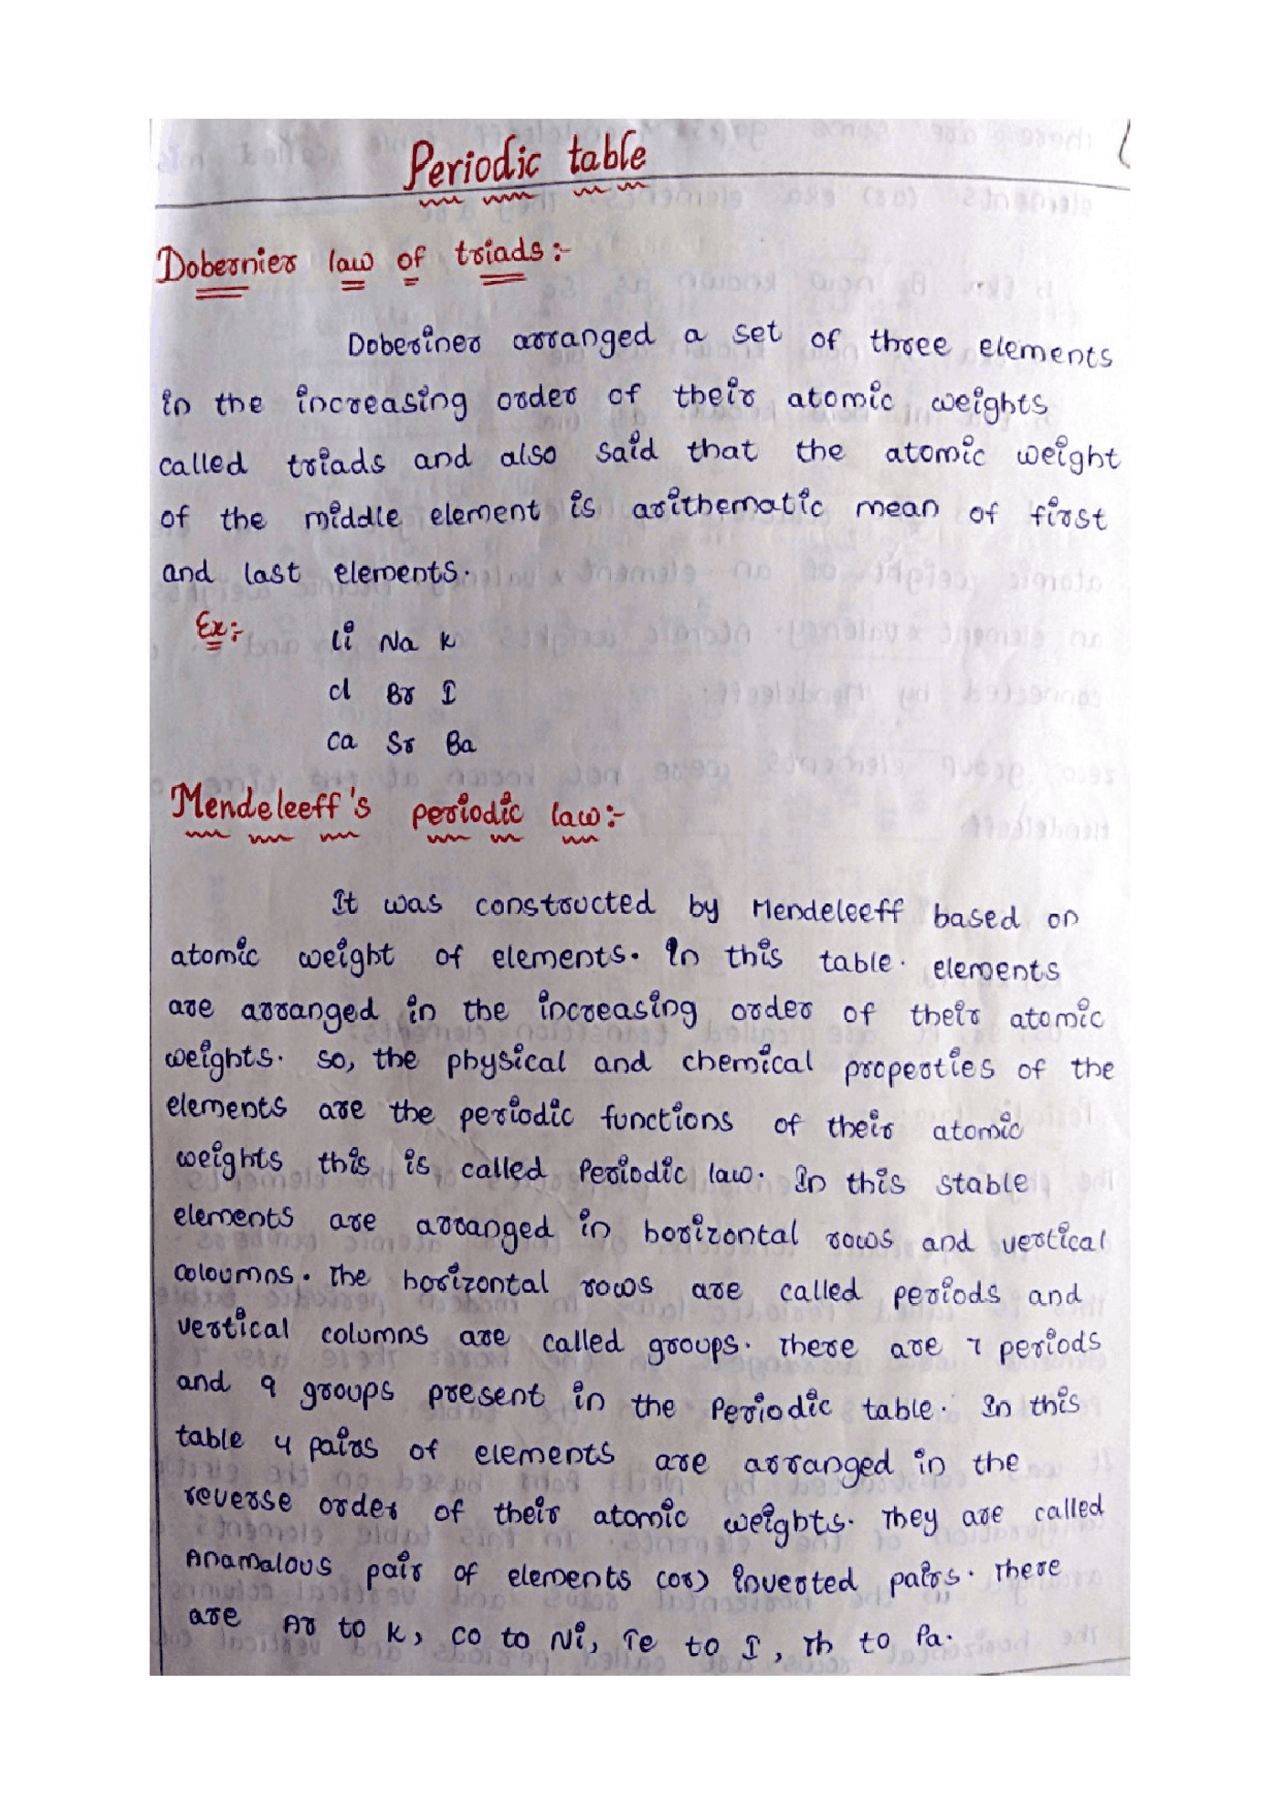 Periodic table
Dobernier law of triads:-
Doberiner arranged a set of three elements
in the increasing order of their atomic weights
called triads and also said that the atomic weight
of the middle element is arithematic mean of first
and last elements.
Ex:- Li Na K
Cl Br I
Ca Sr Ba
Mendeleeff's periodic law:-
It was constructed by Mendeleeff based on
atomic weight of elements. In this table. elements
are arranged in the increasing order of their atomic
weights. So, the physical and chemical properties of the
elements are the periodic functions of their atomic
weights this is called Periodic law. In this stable
elements are arranged in horizontal rows and vertical
coloumns. The horizontal rows are called periods and
vertical columns are called groups. There are 7 periods
and 9 groups present in the Periodic table. In this
table 4 pairs of elements are arranged in the
reverse order of their atomic weights. They are called
Anamalous pair of elements (or) inverted pairs. There
are Ar to K, Co to Ni, Te to I, Th to Pa.